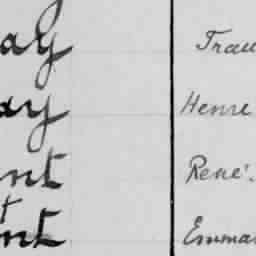 ay Frau
ay Henre
ent René.
ent Emma